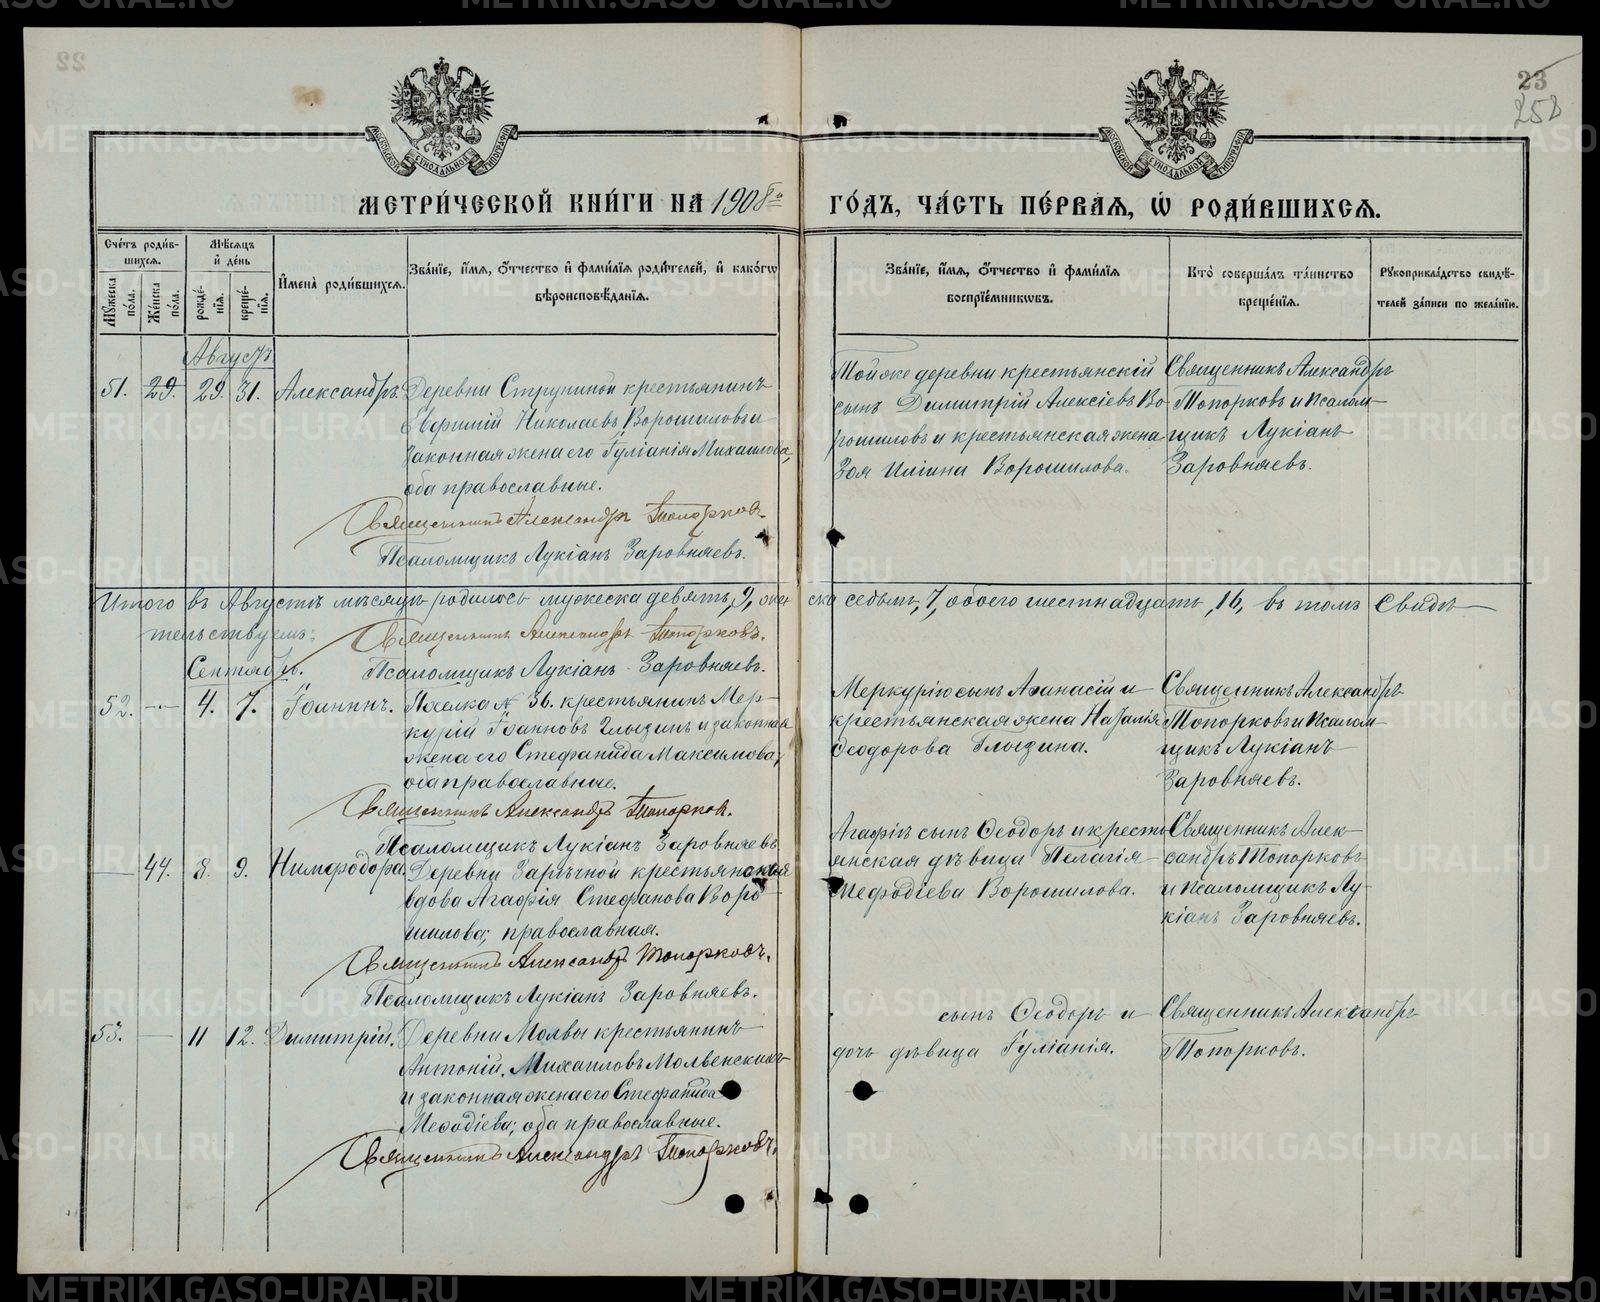 23
258
МЕТРИ́ЧЕСКОЙ КНИ́ГИ НА 1908й ГО́ДЪ, ЧА́СТЬ ПЕ́РВАѦ, Ѡ҆ РОДИ́ВШИХСѦ.
Сче́тъ роди́в-
шихсѧ.
Мꙋ́жеска по́ла.
Же́нска по́ла.
Мѣ́сѧцъ
и҆ де́нь
рожде́-
нїѧ.
креще́-
нїѧ.
И҆мена̀ роди́вшихсѧ.
Зва́нїе, и҆́мѧ, ѻ҆́тчество и҆ фами́лїѧ роди́телей, и҆ како́гѡ
вѣроисповѣ́данїѧ.
Зва́нїе, и҆́мѧ, ѻ҆́тчество и҆ фами́лїѧ
воспрїе́мникѡвъ.
Кто̀ соверша́лъ та́инство
креще́нїѧ.
Рꙋкоприкла́дство свидѣ́-
телей за́писи по жела́нїю.
Августъ
51. 29. 29. 31. Александръ.
Деревни Струниной крестьянинъ
Евфимій Николаевъ Ворошиловъ и
законная жена его Іуліанія Михаилова,
оба православные.
Священникъ Александръ Топорков.
Псаломщикъ Лукіанъ Заровняевъ.
Той же деревни крестьянскій
сынъ Димитрій Алексіевъ Во-
рошиловъ и крестьянская жена
Зоя Иліина Ворошилова.
Священникъ Александръ
Топорковъ и псалом-
щикъ Лукіанъ
Заровняевъ.
Итого въ Августѣ мѣсяцѣ родилось мужеска девять, 9, женска седьмь, 7, обоего шестнадцать, 16, въ томъ свидѣ-
тельствуемъ:
Священникъ Александръ Топорковъ.
Псаломщикъ Лукіанъ Заровняевъ.
Сентябрь.
52. — 4. 7. Іоаннъ.
№ 36. крестьянинъ Мер-
курій Іоанновъ Глызинъ и законная
жена его Стефанида Максимова;
оба православные.
Священникъ Александръ Топорков.
Псаломщикъ Лукіанъ Заровняевъ
Меркурію сынъ Аѳанасій и
крестьянская жена Наталія
Ѳеодорова Глызина.
Священникъ Александръ
Топорковъ и псалом-
щикъ Лукіанъ
Заровняевъ.
— 44. 8. 9. Нимфодора.
Деревни Зарѣчной крестьянская
вдова Агафія Стефанова Воро-
шилова; православная.
Священникъ Александръ Топорковъ.
Псаломщикъ Лукіанъ Заровняевъ.
Агафіи сынъ Ѳеодоръ и кресть
янская дѣвица Пелагія
Меѳодіева Ворошилова.
Священникъ Алек-
сандръ Топорковъ
и псаломщикъ Лу-
кіанъ Заровняевъ.
53. — 11 12. Димитрій.
Деревни Молвы крестьянинъ
Антоній Михаиловъ Молвенскихъ
и законная жена его Стефанида
Меѳодіева; оба православные.
Священникъ Александръ Топорковъ.
сынъ Ѳеодоръ и
дочь дѣвица Іуліанія.
Священникъ Александръ
Топорковъ.
METRIKI.GASO-URAL.RU